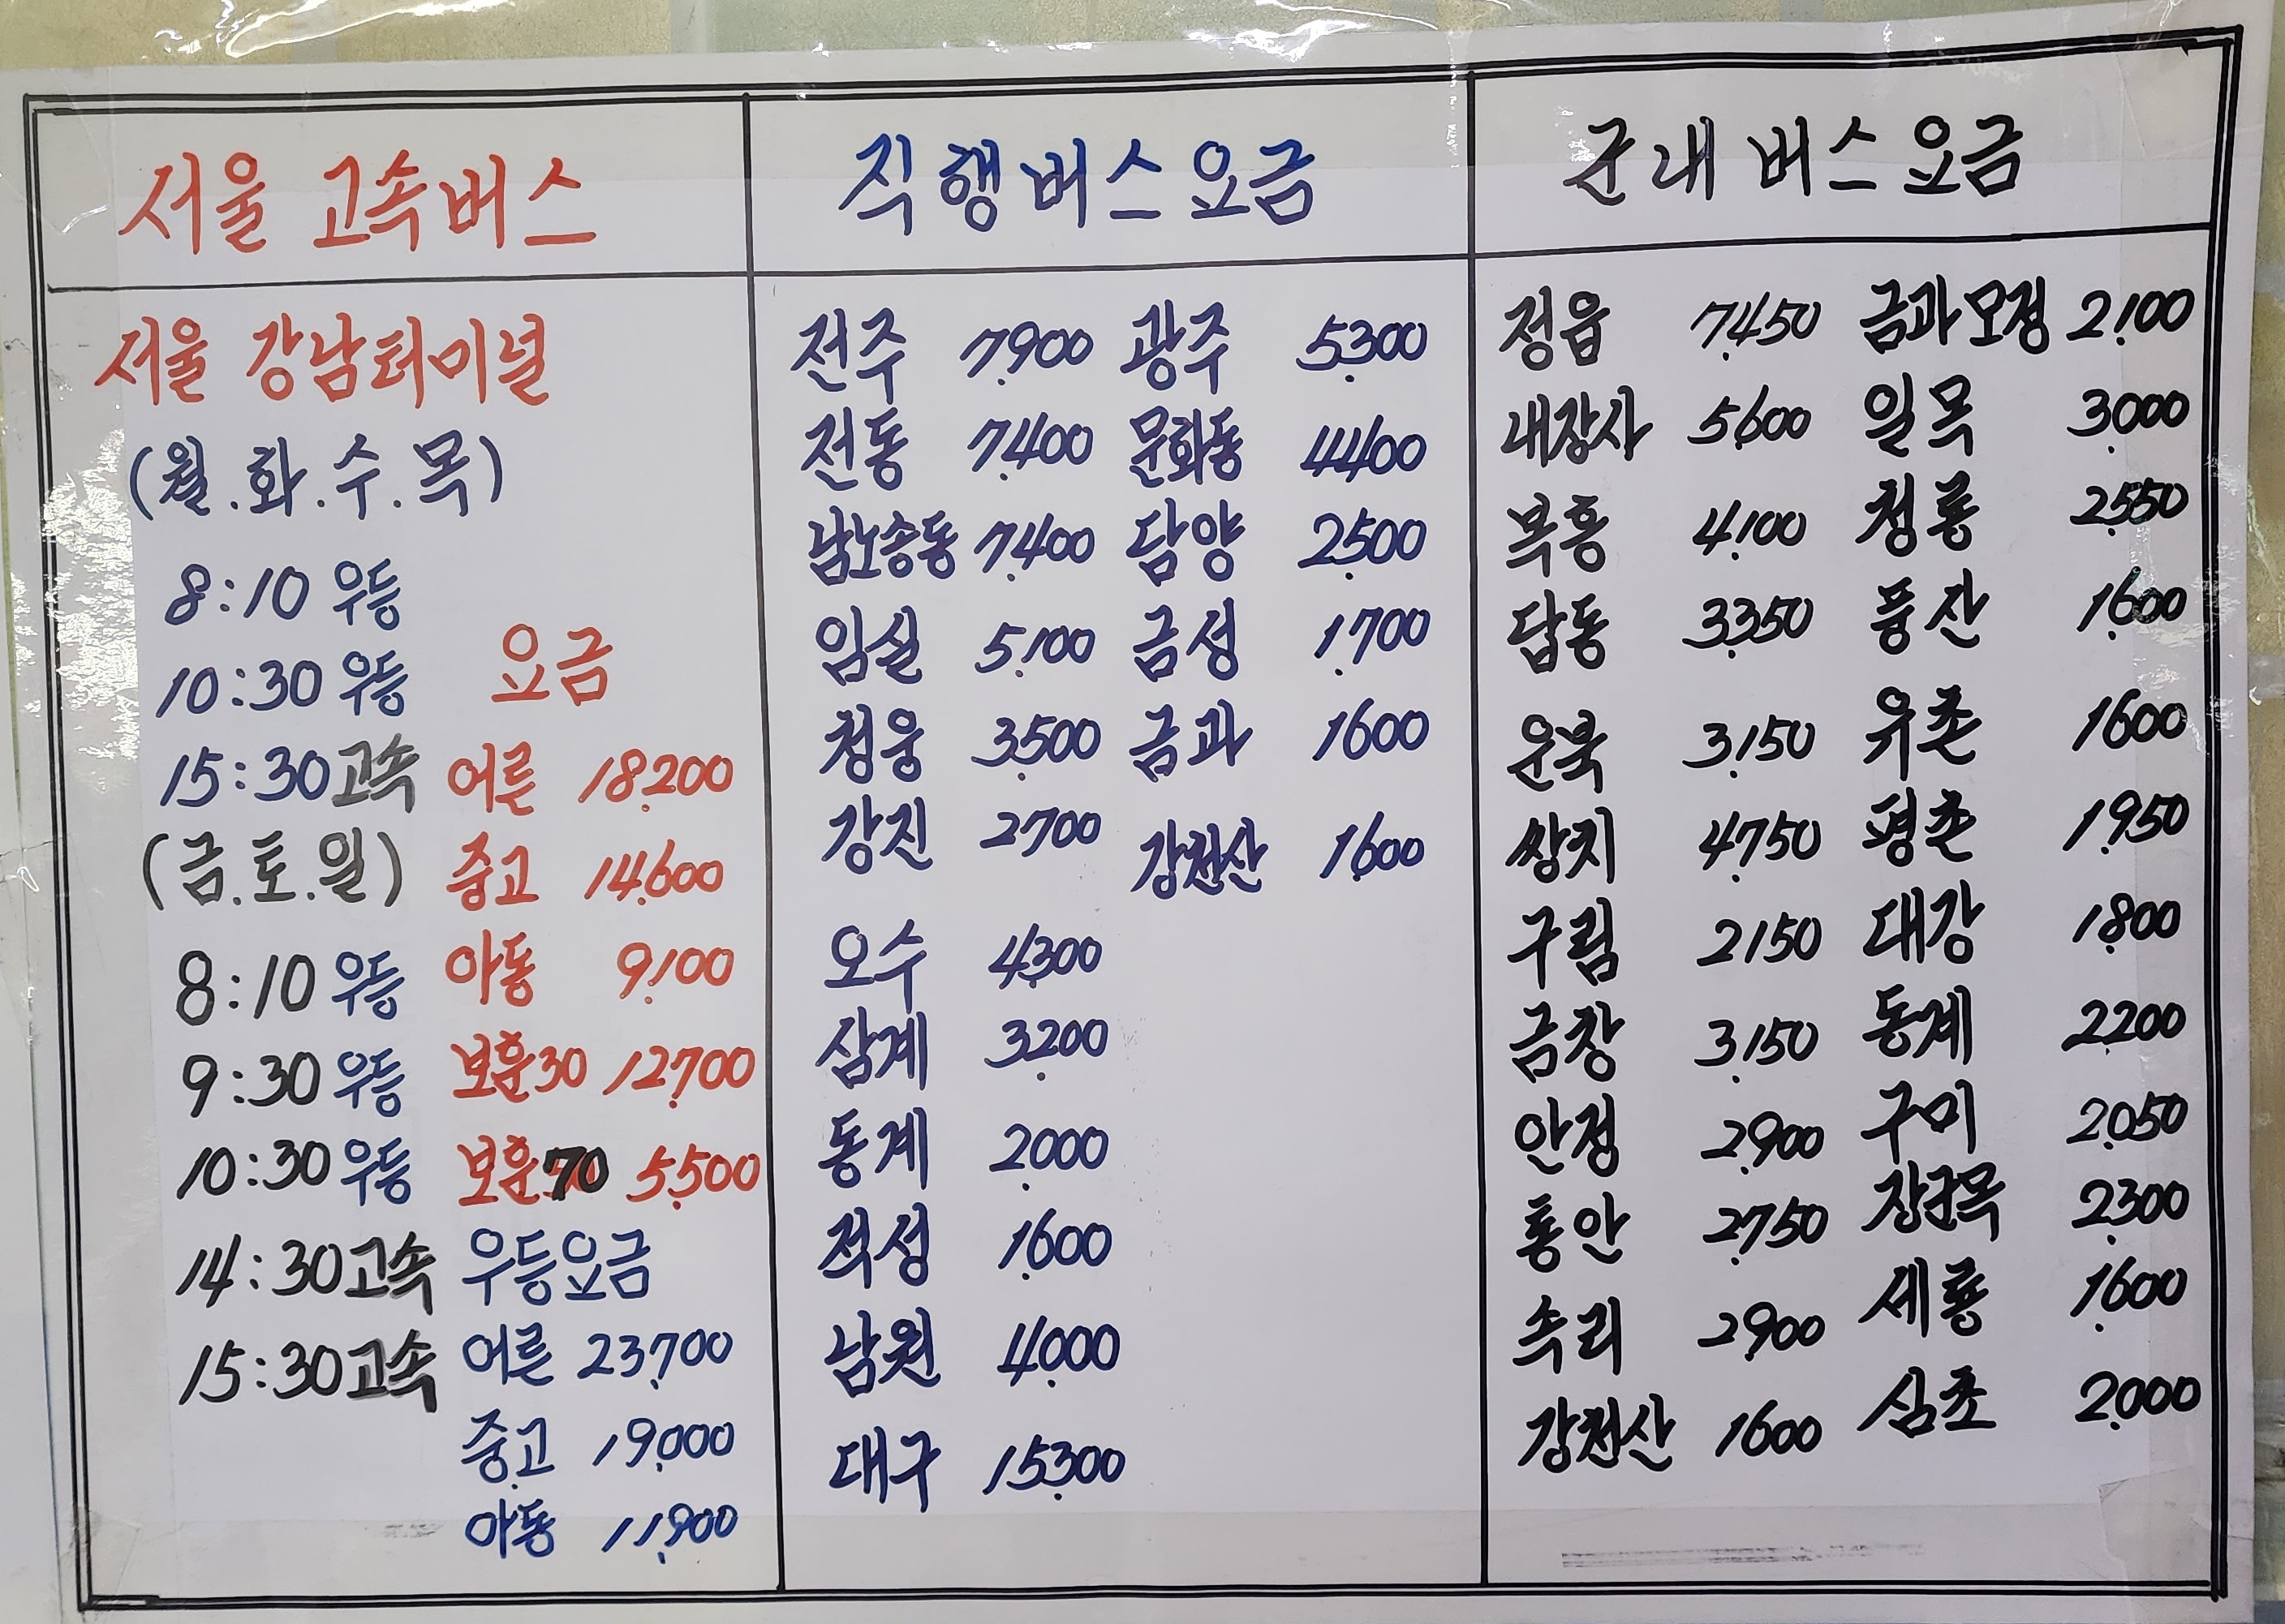 서울 고속버스
서울 강남터미널
(월.화.수.목)
8:10 우등
10:30 우등
15:30 고속
(금.토.일)
8:10 우등
9:30 우등
10:30 우등
14:30 고속
15:30 고속
요금
어른 18,200
중고 14,600
아동 9,100
보훈30 12,700
보훈70 5,500
우등요금
어른 23,700
중고 19,000
아동 11,900
직행버스요금
전주 7,900
전동 7,400
남노송동 7,400
임실 5,100
청웅 3,500
강진 2,700
오수 4,300
삼계 3,200
동계 2,000
적성 1,600
남원 4,000
대구 15,300
광주 5,300
문화동 4,400
담양 2,500
금성 1,700
금과 1,600
강천산 1,600
군내버스요금
정읍 7,450
내장사 5,600
복흥 4,100
답동 3,350
운북 3,150
쌍치 4,750
구림 2,150
금창 3,150
안정 2,900
통안 2,750
속리 2,900
강천산 1,600
금과모정 2,100
일목 3,000
청룡 2,550
풍산 1,600
유촌 1,600
평촌 1,950
대강 1,800
동계 2,200
구미 2,050
장군목 2,300
세룡 1,600
심초 2,000